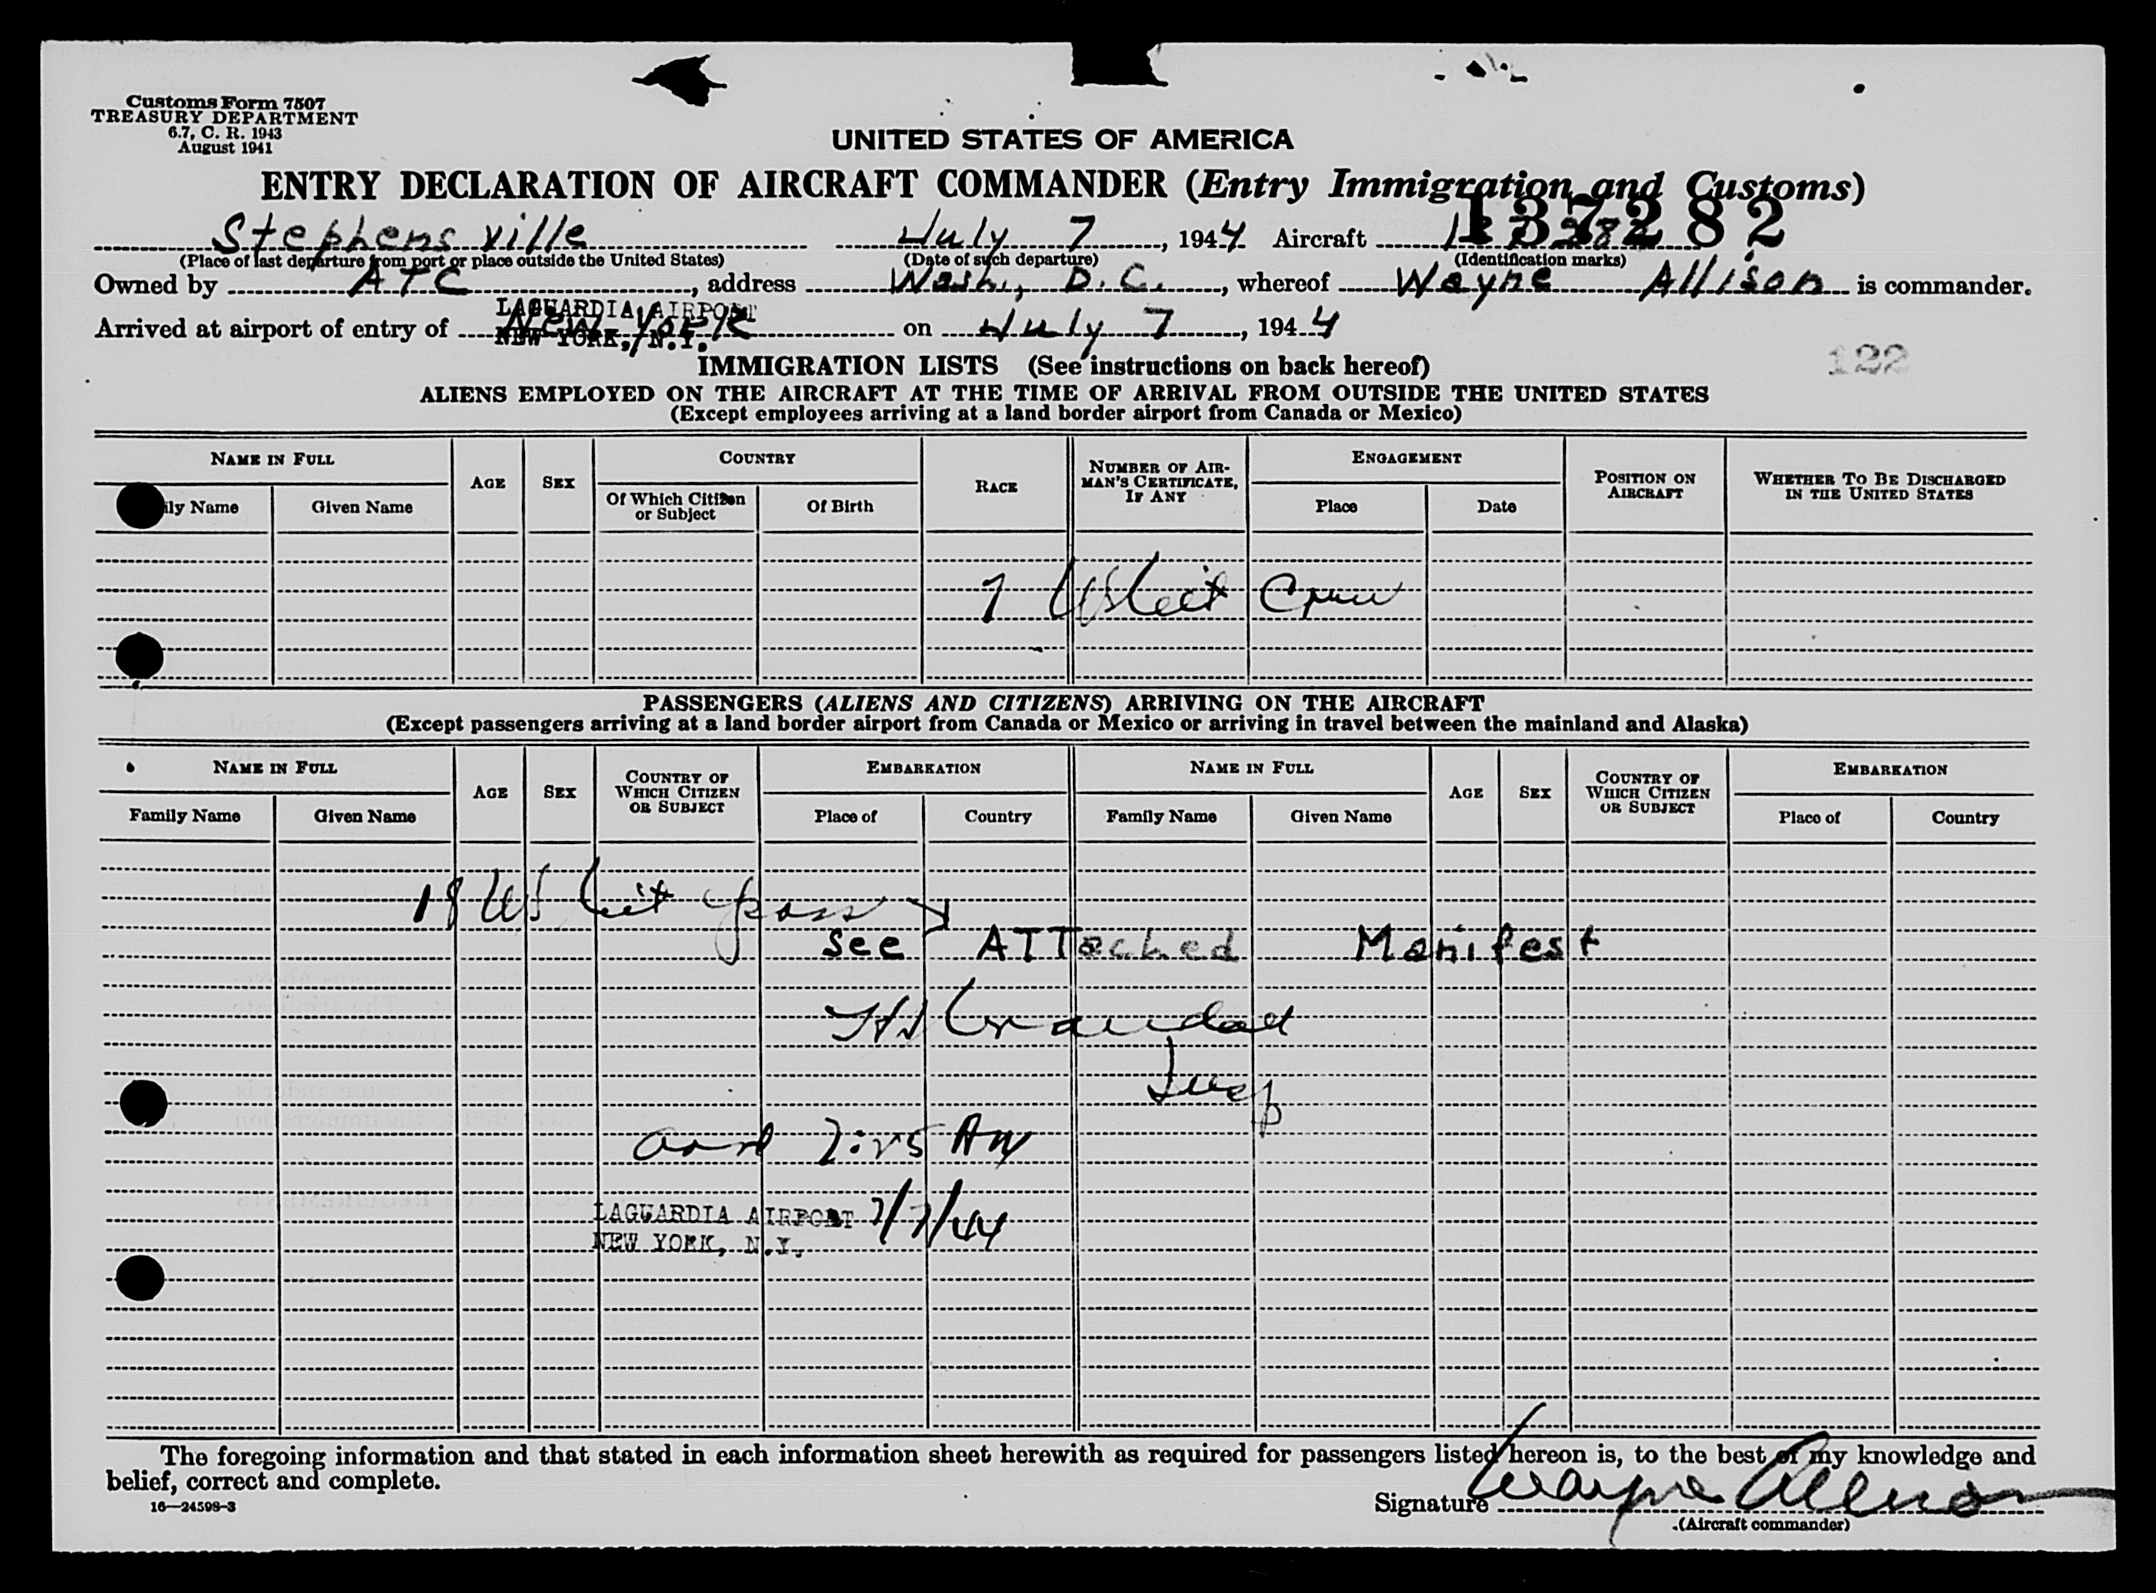 Customs Form 7507
TREASURY DEPARTMENT
6.7, C. R. 1943
August 1941
UNITED STATES OF AMERICA
ENTRY DECLARATION OF AIRCRAFT COMMANDER (Entry Immigration and Customs)
137282
Stephensville July 7, 1944 Aircraft
(Place of last departure from port or place outside the United States) (Date of such departure) (Identification marks)
Owned by ATC, address Wash., D.C., whereof Wayne Allison is commander.
LAGUARDIA AIRPORT
Arrived at airport of entry of New York on July 7, 1944
NEW YORK, N.Y.
122
IMMIGRATION LISTS (See instructions on back hereof)
ALIENS EMPLOYED ON THE AIRCRAFT AT THE TIME OF ARRIVAL FROM OUTSIDE THE UNITED STATES
(Except employees arriving at a land border airport from Canada or Mexico)
NAME IN FULL AGE SEX COUNTRY RACE NUMBER OF AIRMAN'S CERTIFICATE, IF ANY ENGAGEMENT POSITION ON AIRCRAFT WHETHER TO BE DISCHARGED IN THE UNITED STATES
ily Name Given Name Of Which Citizen or Subject Of Birth Place Date
7 US Cit Crew
PASSENGERS (ALIENS AND CITIZENS) ARRIVING ON THE AIRCRAFT
(Except passengers arriving at a land border airport from Canada or Mexico or arriving in travel between the mainland and Alaska)
NAME IN FULL AGE SEX COUNTRY OF WHICH CITIZEN OR SUBJECT EMBARKATION NAME IN FULL AGE SEX COUNTRY OF WHICH CITIZEN OR SUBJECT EMBARKATION
Family Name Given Name Place of Country Family Name Given Name Place of Country
18 US Cit pass
See ATTached Manifest
Insp
7:25 AM
LAGUARDIA AIRPORT 7/7/44
NEW YORK, N.Y.
The foregoing information and that stated in each information sheet herewith as required for passengers listed hereon is, to the best of my knowledge and
belief, correct and complete.
16—24598-3
Signature Wayne Allison
(Aircraft commander)